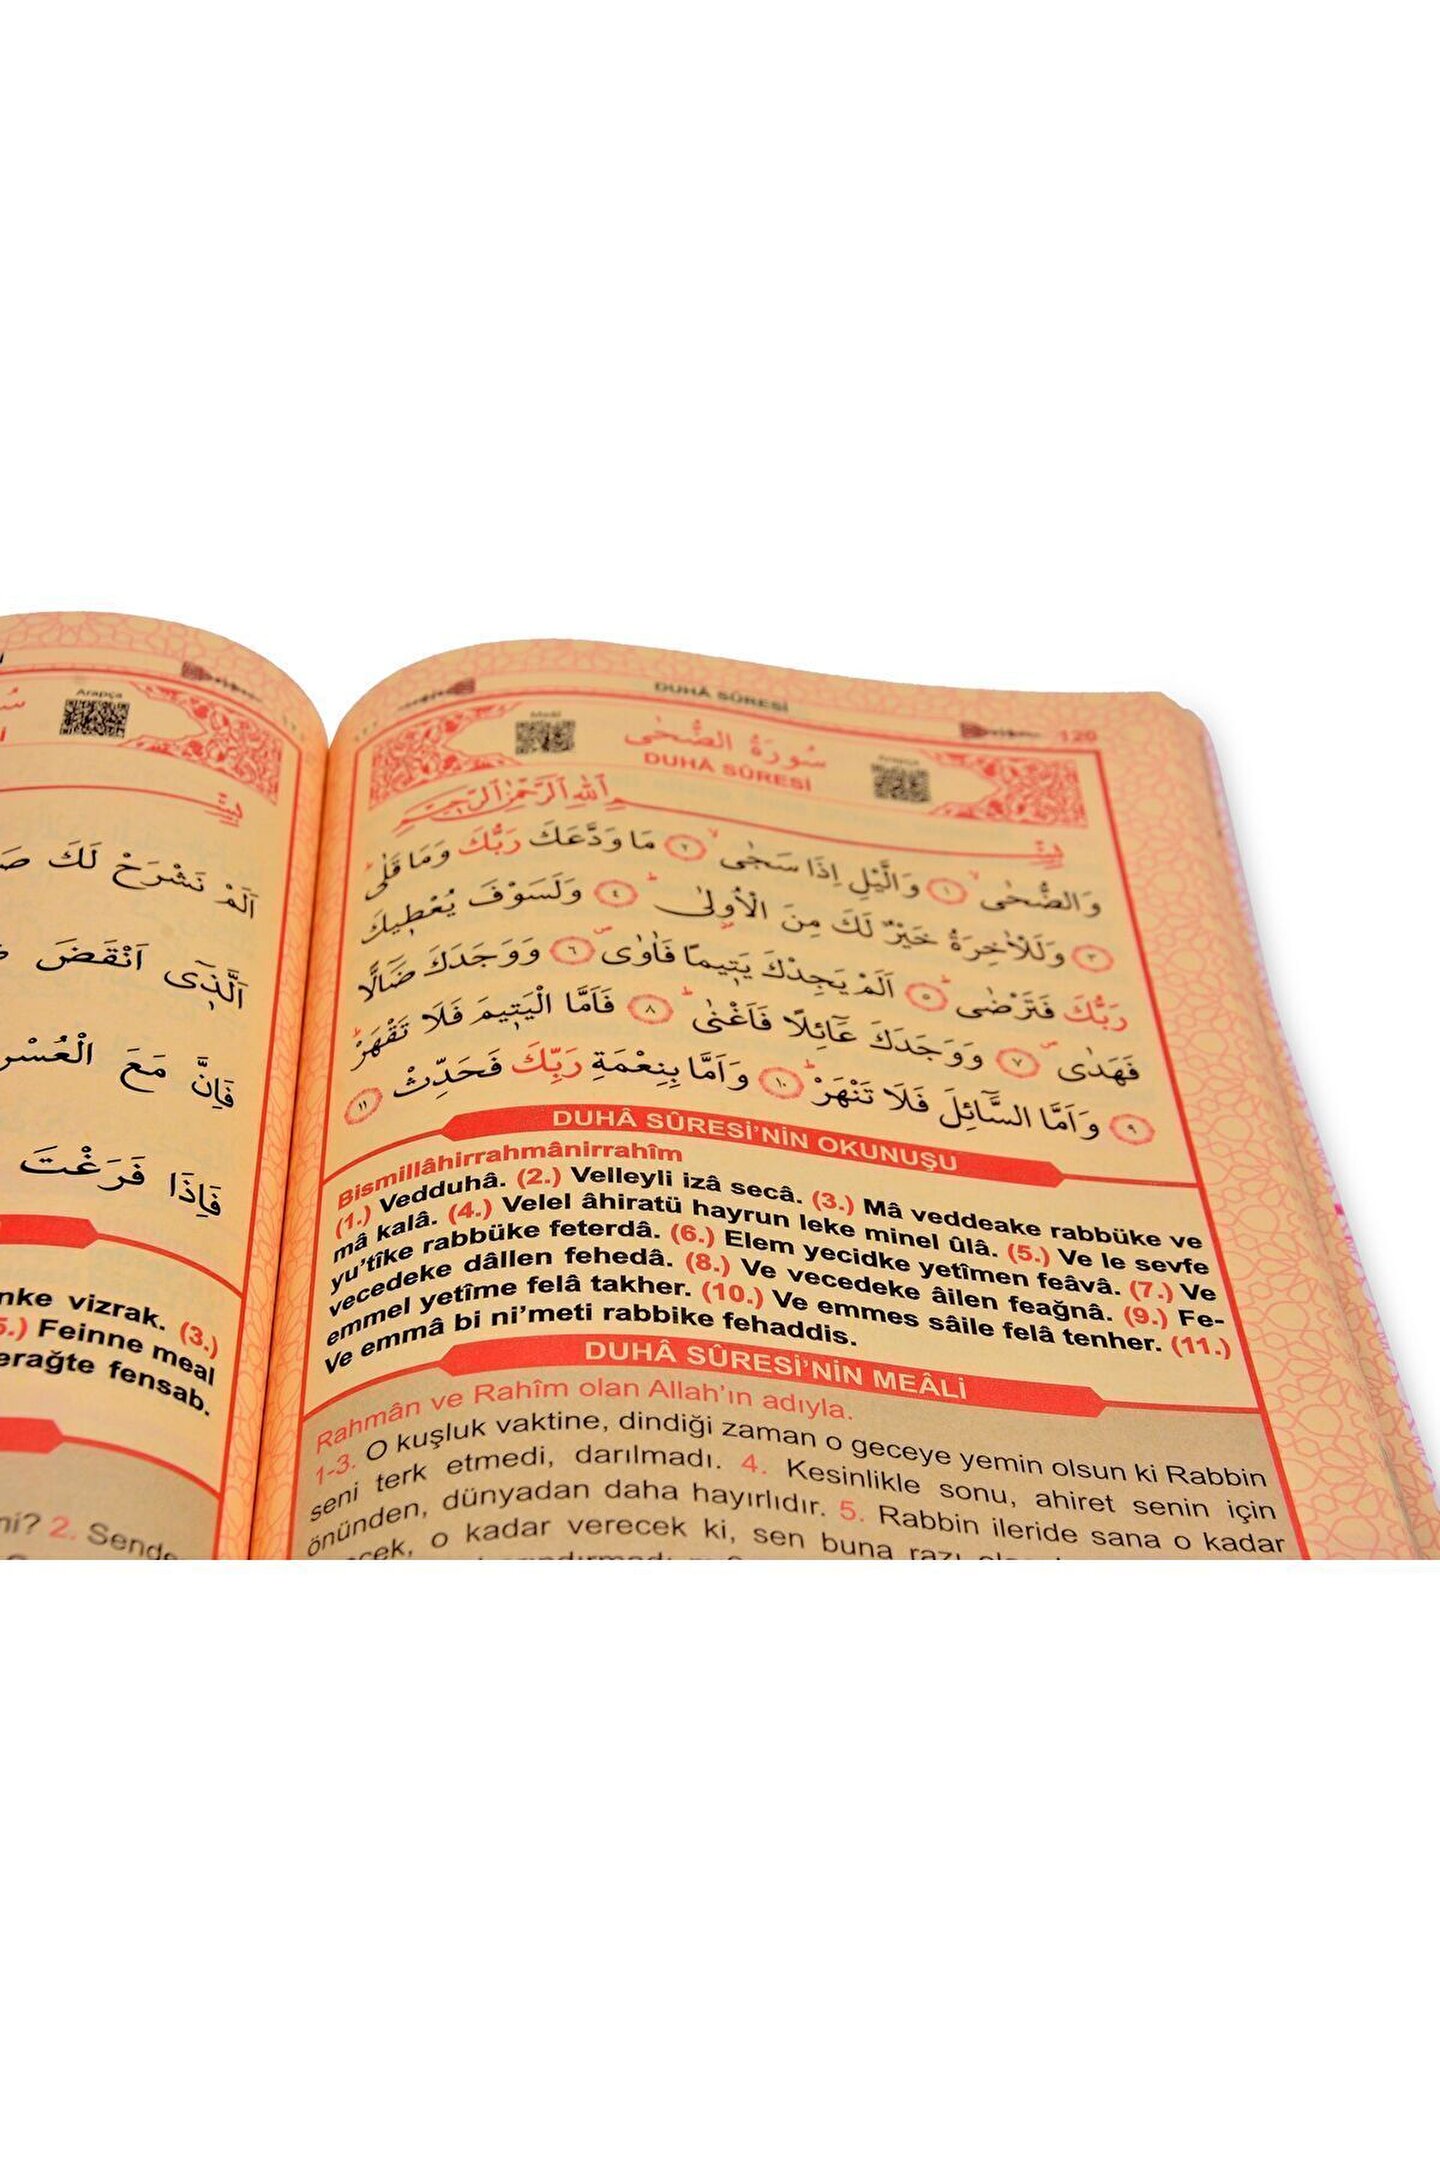 Arapça
اَلَمْ نَشْرَحْ لَكَ
اَلَّذٖٓى اَنْقَضَ
فَاِنَّ مَعَ الْعُسْرِ
فَاِذَا فَرَغْتَ
nke vizrak. (3.)
5.) Feinne meal
erağte fensab.
ni? 2. Sende
DUHÂ SÛRESİ
120
Meâl
سُورَةُ الضُّحٰى
DUHÂ SÛRESİ
بِسْمِ اللّٰهِ الرَّحْمٰنِ الرَّحٖيمِ
وَالضُّحٰىۙ ﴿١﴾ وَالَّيْلِ اِذَا سَجٰىۙ ﴿٢﴾ مَا وَدَّعَكَ رَبُّكَ وَمَا قَلٰىؕ
﴿٣﴾ وَلَلْاٰخِرَةُ خَيْرٌ لَكَ مِنَ الْاُو۫لٰىؕ ﴿٤﴾ وَلَسَوْفَ يُعْطٖيكَ
رَبُّكَ فَتَرْضٰىؕ ﴿٥﴾ اَلَمْ يَجِدْكَ يَتٖيمًا فَاٰوٰىࣕ ﴿٦﴾ وَوَجَدَكَ ضَٓالًّا
فَهَدٰىࣕ ﴿٧﴾ وَوَجَدَكَ عَٓائِلًا فَاَغْنٰىؕ ﴿٨﴾ فَاَمَّا الْيَتٖيمَ فَلَا تَقْهَرْؕ
﴿٩﴾ وَاَمَّا السَّٓائِلَ فَلَا تَنْهَرْؕ ﴿١٠﴾ وَاَمَّا بِنِعْمَةِ رَبِّكَ فَحَدِّثْ ﴿١١﴾
DUHÂ SÛRESİ'NİN OKUNUŞU
Bismillâhirrahmânirrahîm
(1.) Vedduhâ. (2.) Velleyli izâ secâ. (3.) Mâ veddeake rabbüke ve
mâ kalâ. (4.) Velel âhiratü hayrun leke minel ûlâ. (5.) Ve le sevfe
yu'tîke rabbüke feterdâ. (6.) Elem yecidke yetîmen feâvâ. (7.) Ve
vecedeke dâllen fehedâ. (8.) Ve vecedeke âilen feağnâ. (9.) Fe-
emmel yetîme felâ takher. (10.) Ve emmes sâile felâ tenher. (11.)
Ve emmâ bi ni'meti rabbike fehaddis.
DUHÂ SÛRESİ'NİN MEÂLİ
Rahmân ve Rahîm olan Allah'ın adıyla.
1-3. O kuşluk vaktine, dindiği zaman o geceye yemin olsun ki Rabbin
seni terk etmedi, darılmadı. 4. Kesinlikle sonu, ahiret senin için
önünden, dünyadan daha hayırlıdır. 5. Rabbin ileride sana o kadar
ecek, o kadar verecek ki, sen buna razı